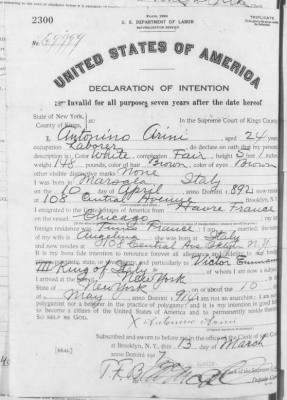 Form 2203
TRIPLICATE
2300
U. S. DEPARTMENT OF LABOR
NATURALIZATION SERVICE
No.
UNITED STATES OF AMERICA
DECLARATION OF INTENTION
Invalid for all purposes seven years after the date hereof
State of New York,
In the Supreme Court of Kings County.
County of Kings,
I, Antonino Arini, aged 24 years,
occupation Laborer, do declare on oath that my personal
description is: Color White, complexion Fair, height 5 feet inches,
weight 148 pounds, color of hair Brown, color of eyes Brown
other visible distinctive marks None
I was born in Marsala Italy
on the day of April, anno Domini 1892; I now reside
at 108 Central Avenue, Brooklyn, N.Y.
I emigrated to the United States of America from Havre France
on the vessel Chicago; my last
foreign residence was France; I am married; the name
of my wife is Angelina; she was born at Italy
and now resides at 108 Central Ave Bklyn N.Y.
It is my bona fide intention to renounce forever all allegiance and fidelity to any foreign
prince, potentate, state, or sovereignty, and particularly to Victor Emmanuel
III King of Italy, of whom I am now a subject;
I arrived at the port of New York, in the
State of New York, on or about the 10 day
of May, anno Domini 1914; I am not an anarchist; I am not a
polygamist nor a believer in the practice of polygamy; and it is my intention in good faith
to become a citizen of the United States of America and to permanently reside therein:
SO HELP ME GOD.
x Antonino Arini
Subscribed and sworn to before me in the office of the Clerk of said Court
at Brooklyn, N. Y., this 13 day of March
[SEAL]
anno Domini 191